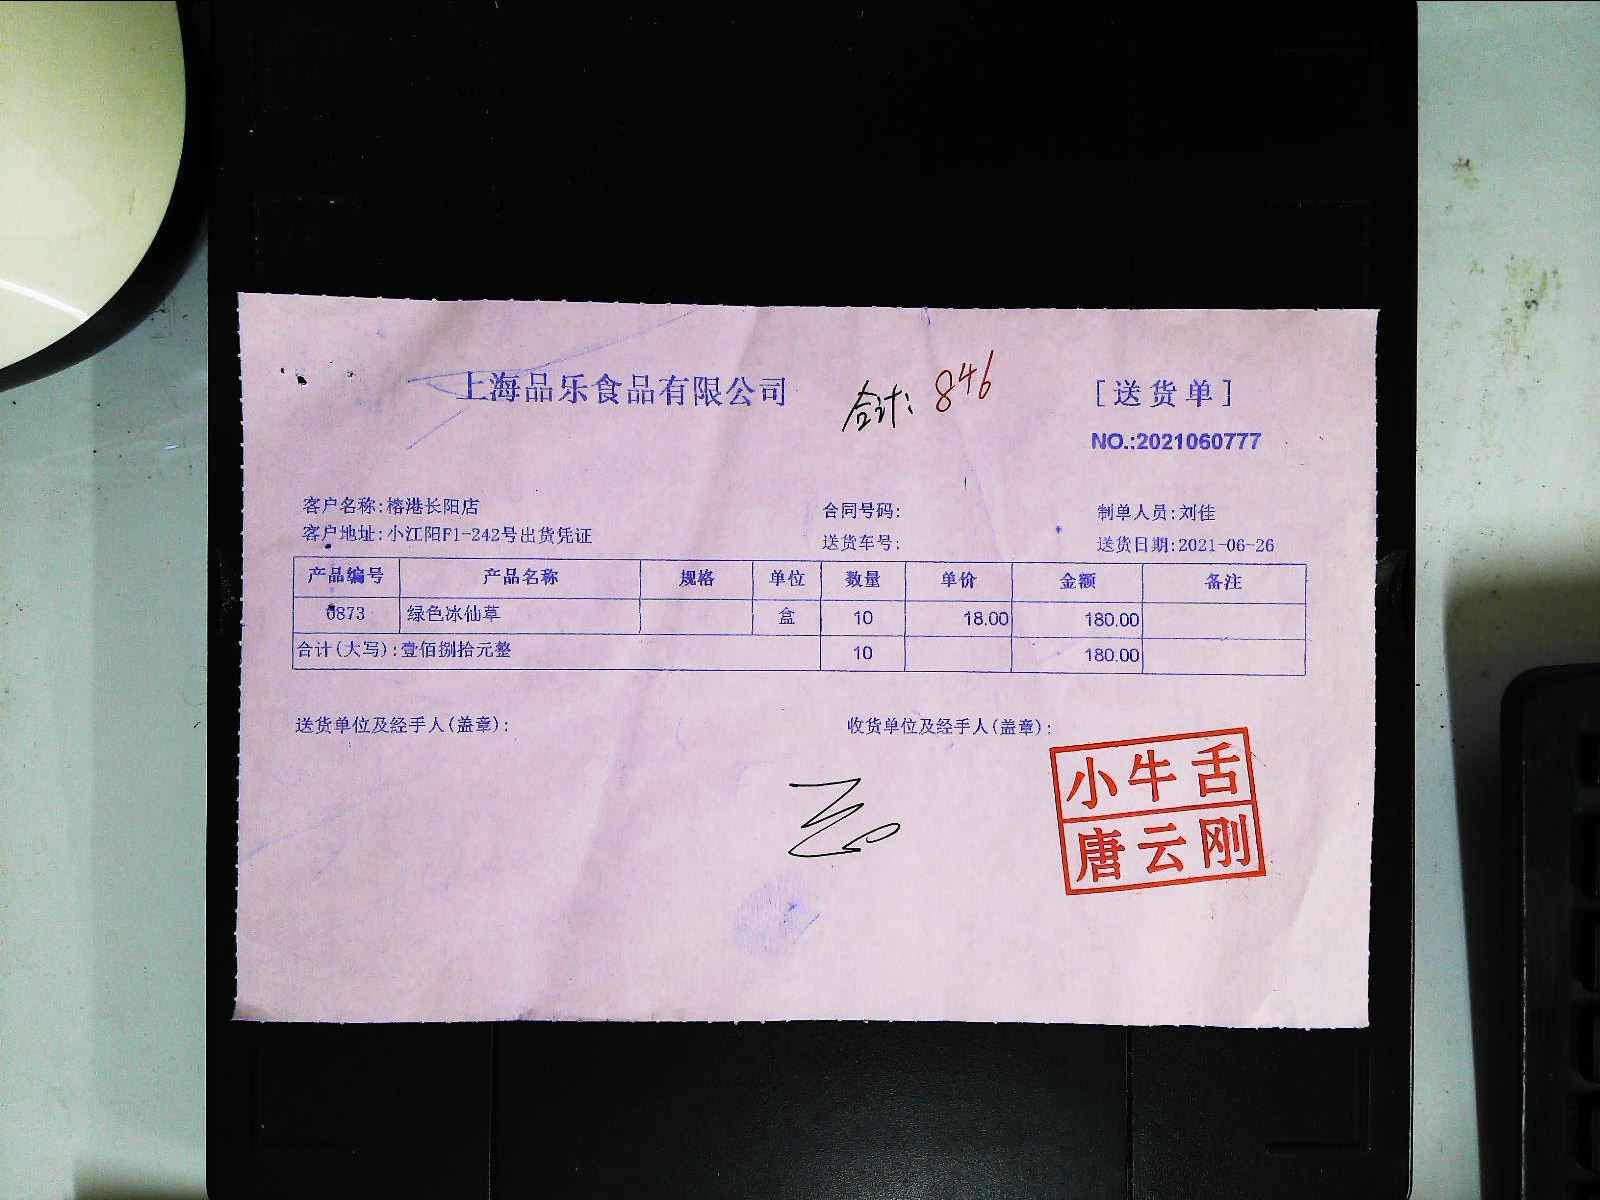 上海品乐食品有限公司
合计: 846
[送货单]
NO.:2021060777
客户名称:榕港长阳店 合同号码: 制单人员:刘佳
客户地址:小江阳F1-242号出货凭证 送货车号: 送货日期:2021-06-26
产品编号 产品名称 规格 单位 数量 单价 金额 备注
0873 绿色冰仙草 盒 10 18.00 180.00
合计(大写):壹佰捌拾元整 10 180.00
送货单位及经手人(盖章): 收货单位及经手人(盖章):
小牛舌
唐云刚